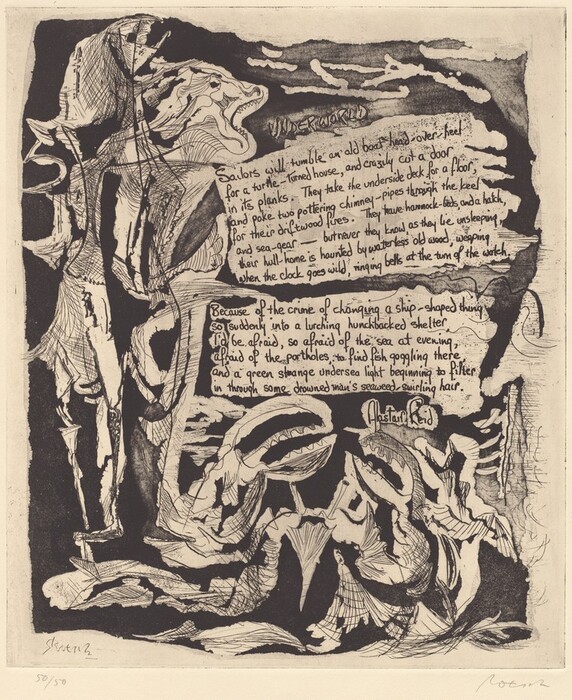 UNDERWORLD
Sailors will tumble an old boat head-over-heel
for a turtle-turned house, and crazily cut a door
in its planks. They take the underside deck for a floor,
and poke two pottering chimney-pipes through the keel
for their driftwood fires. They have hammock-beds, and a hatch,
and sea-gear — but never they know as they lie unsleeping
their hull-home is haunted by waterless old wood, weeping
when the clock goes wild, ringing bells at the turn of the watch.
Because of the crime of changing a ship-shaped thing
so suddenly into a lurching hunchbacked shelter
I'd be afraid, so afraid of the sea at evening,
afraid of the portholes, to find fish goggling there
and a green strange undersea light beginning to filter
in through some drowned man's seaweed-swirling hair.
Alastair Reid
50/50